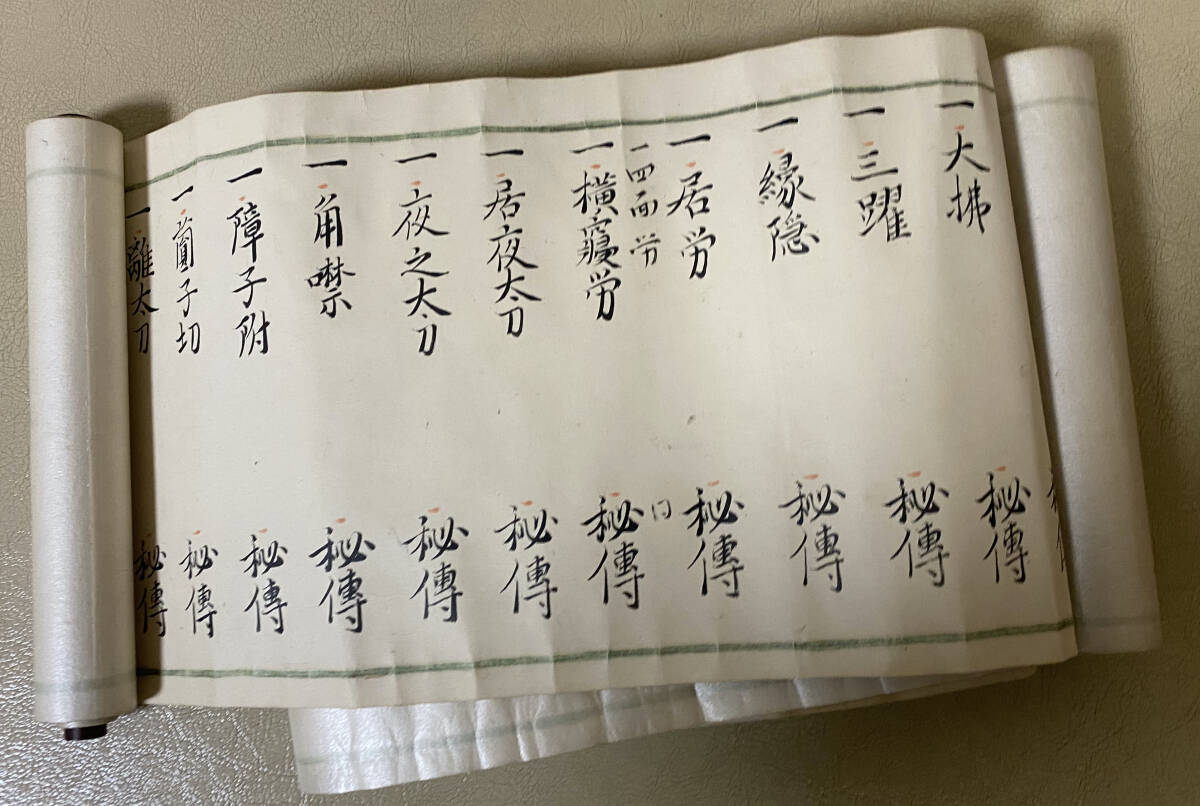 一大拂 秘傳
一三躍 秘傳
一縁隠 秘傳
一居労 秘傳
一四面労
一横寝労 秘傳
一居夜太刀 秘傳
一夜之太刀 秘傳
一角噤 秘傳
一障子附 秘傳
一子切 秘傳
一離太刀 秘傳